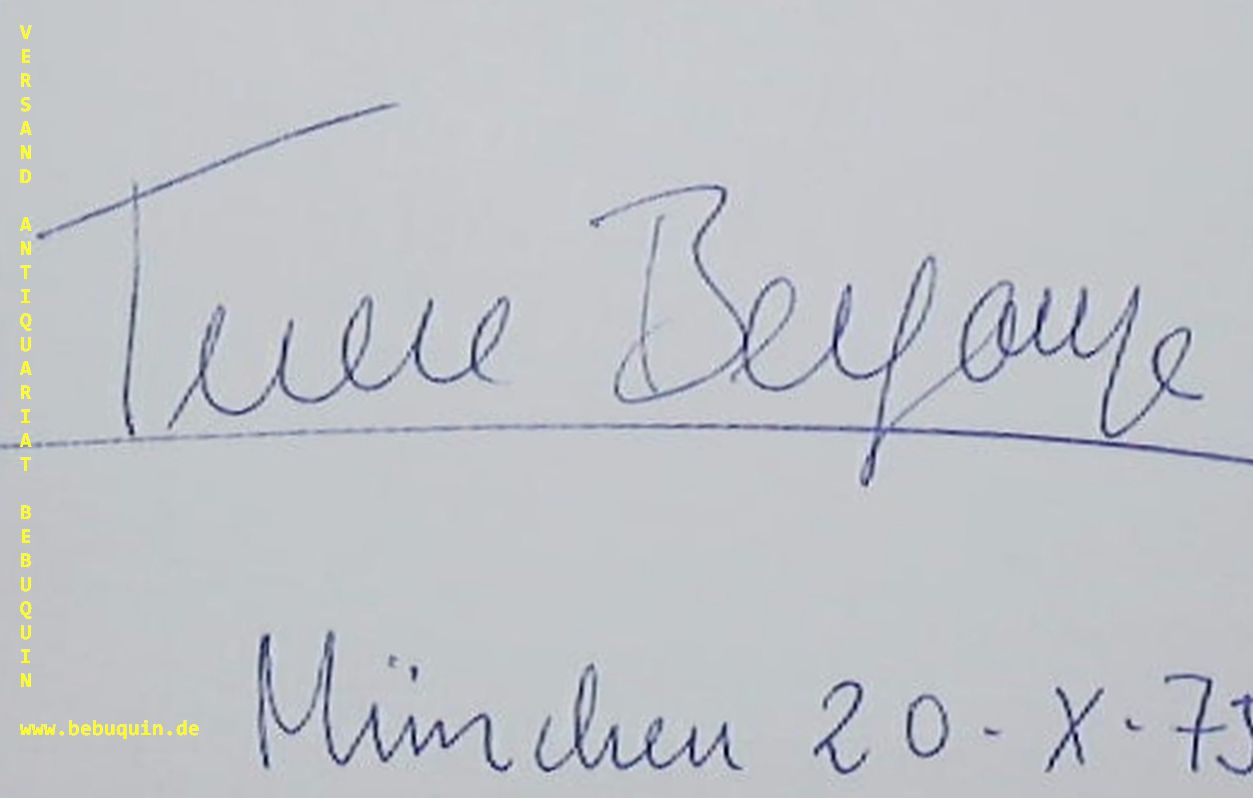 VERSAND ANTIQUARIAT BEBUQUIN
www.bebuquin.de
Teresa Berganza
München 20-X-73